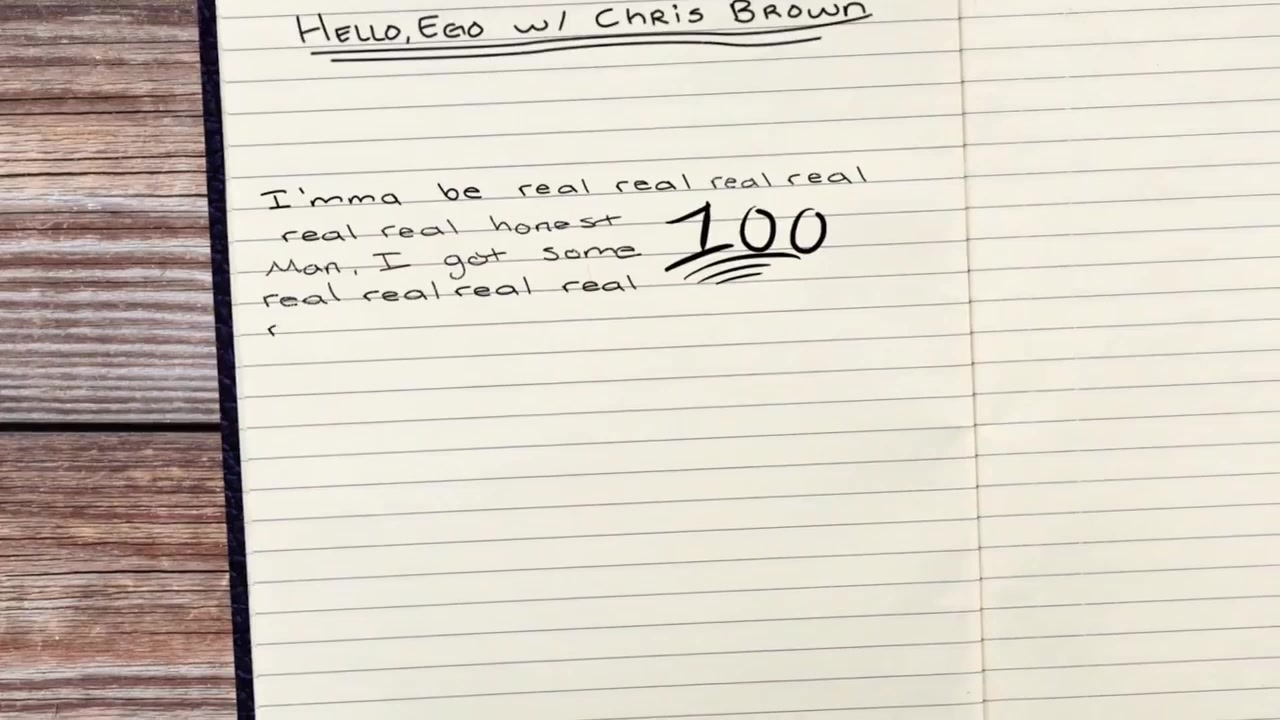 HELLO, EGO W/ CHRIS BROWN
I'mma be real real real real
real real honest
100
Man, I got some
real real real real
r